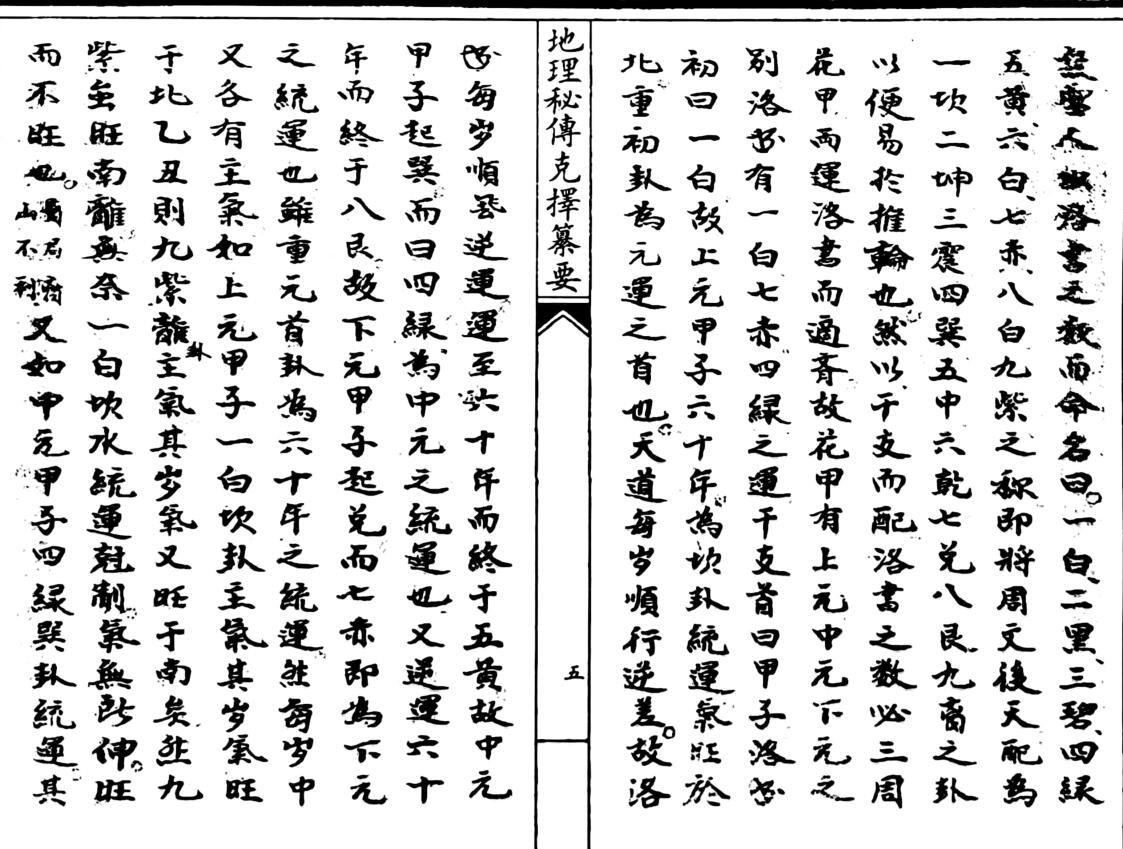 洛書之数而命名曰一白、二黑、三碧、四緑
五黄、六白、七赤、八白九紫之称即将周文後天配為
一坎二坤三震四巽五中六乾七兑八艮九离之卦
以便易於推輪也然以干支而配洛書之数必三周
花甲而運洛書而適齐故花甲有上元中元下元之
别洛书有一白七赤四緑之運干支首曰甲子洛书
初曰一白故上元甲子六十年為坎卦統運氣旺於
北重初卦為元運之首也天道每岁順行逆差故洛
地理秘傳克擇纂要
五
书每岁順㐲逆運運至六十年而終于五黄故中元
甲子起巽而曰四緑為中元之統運也又逆運六十
年而終于八艮故下元甲子起兑而七赤即為下元
之統運也雖重元首卦為六十年之統運然每岁中
又各有主氣如上元甲子一白坎卦主氣其岁氣旺
于北乙丑則九紫離卦主氣其岁氣又旺于南矣然九
紫虽旺南離無奈一白坎水統運尅制氣無所伸旺
而不旺也山不到又如中元甲子四緑巽卦統運其